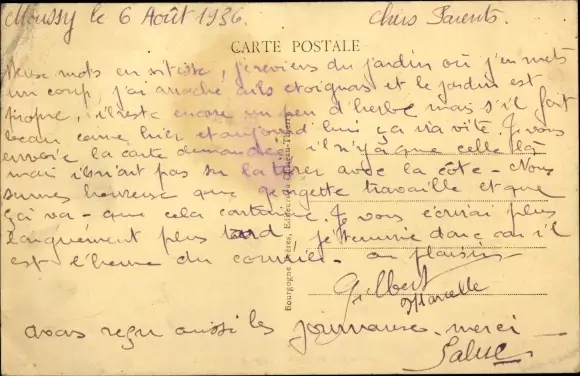 Moussy le 6 Août 1936. Chers Parents.
CARTE POSTALE
Deux mots en vitesse, je reviens du jardin où j'en mets
un coup, j'ai arraché ails et oignons et le jardin est
propre, il reste encore un peu d'herbe mais s'il fait
beau comme hier et aujourd'hui ça ira vite. Je vous
envoie la carte demandée, il n'y a que celle là
mais ils n'ont pas su la tirer avec la côte - Nous
sommes heureuse que Georgette travaille et que
ça va - que cela continue. Je vous écrirai plus
longuement plus tard, je termine donc car il
est l'heure du courrier - au plaisir -
Gilbert
Marcelle
avons reçu aussi les journaux. merci -
Salut
Bourgogne Frères,